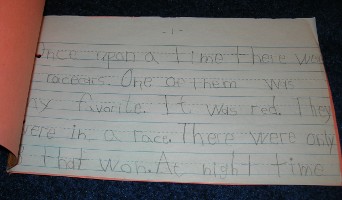 - 1 -
Once upon a time there were
racecars. One of them was
my favorite. It was red. They
were in a race. There were only
that won. At night time